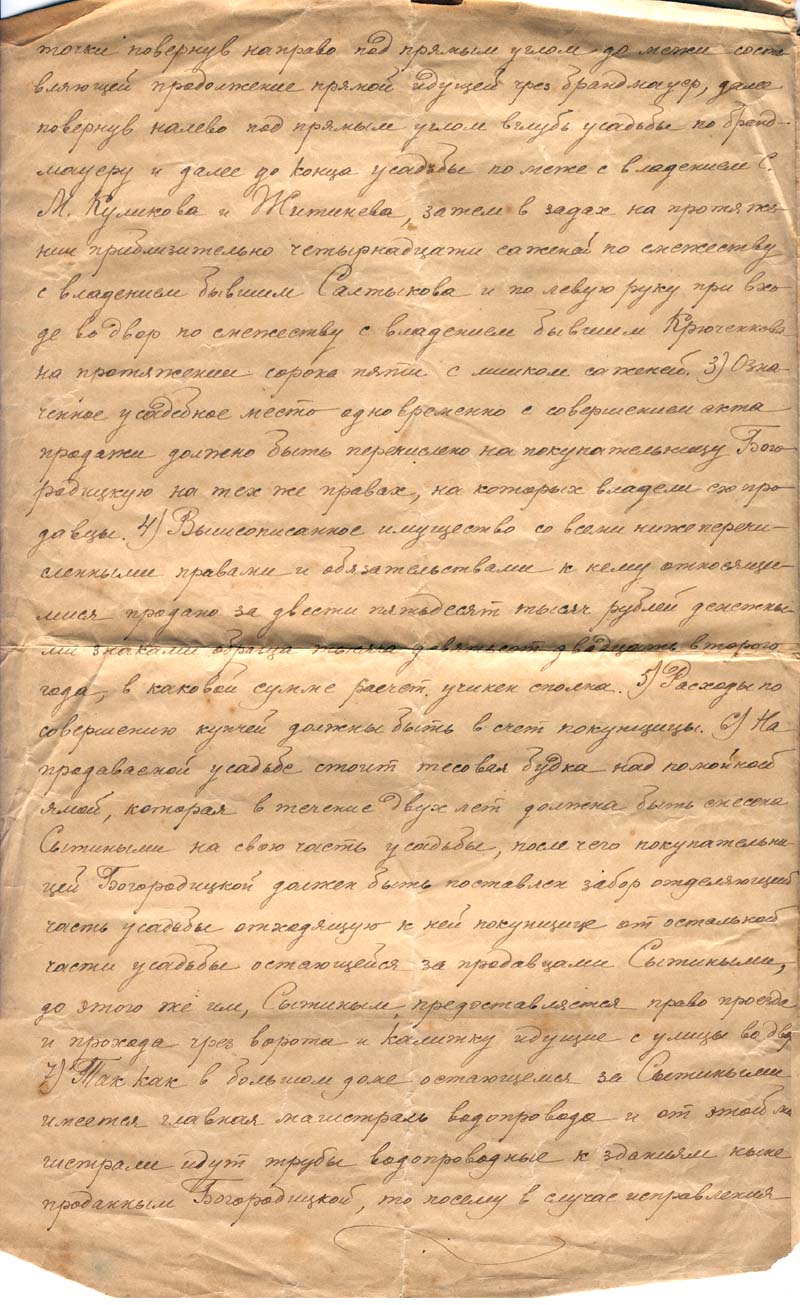 точки повернув направо под прямым углом до межи соста
вляющей продолжение прямой идущей чрез брандмауер, далее
повернув налево под прямым углом вглубь усадьбы по бранд-
мауеру и далее до конца усадьбы по меже с владением С.
М. Куликова и Житинева, затем в задах на протяже-
нии приблизительно четырнадцати сажен по смежеству
с владением бывшим Салтыкова и по левую руку при вхо-
де во двор по смежеству с владением бывшим Крюченкова
на протяжении сорока пяти с лишком саженей. 3) Озна-
ченное усадебное место одновременно с совершением акта
продажи должно быть перечислено на покупательницу Бого-
родицкую на тех же правах, на которых владели ею про-
давцы. 4) Вышеописанное имущество со всеми нижепере чи-
сленными правами и обязательствами к нему относящи-
мися продано за двести пятьдесят тысяч рублей денежны-
ми знаками образца тысяча девятьсот двадцать второго
года, в каковой сумме расчет учинен сполна. 5) Расходы по
совершению купчей должны быть в счет покупщицы. 6) На
продаваемой усадьбе стоит тесовая будка над помойной
ямой, которая в течение двух лет должна быть снесена
Сытиными на свою часть усадьбы, после чего покупательни-
цей Богородицкой должен быть поставлен забор отделяющий
часть усадьбы отходящую к ней покупщице от остальной
части усадьбы остающейся за продавцами Сытиными,
до этого же им, Сытиным, предоставляется право проезда
и прохода чрез ворота и калитку идущие с улицы во двор
7) Так как в большом доме остающемся за Сытиными
имеется главная магистраль водопровода и от этой ма
гистрали идут трубы водопроводные к зданиям ныне
проданным Богородицкой, то посему в случае исправления